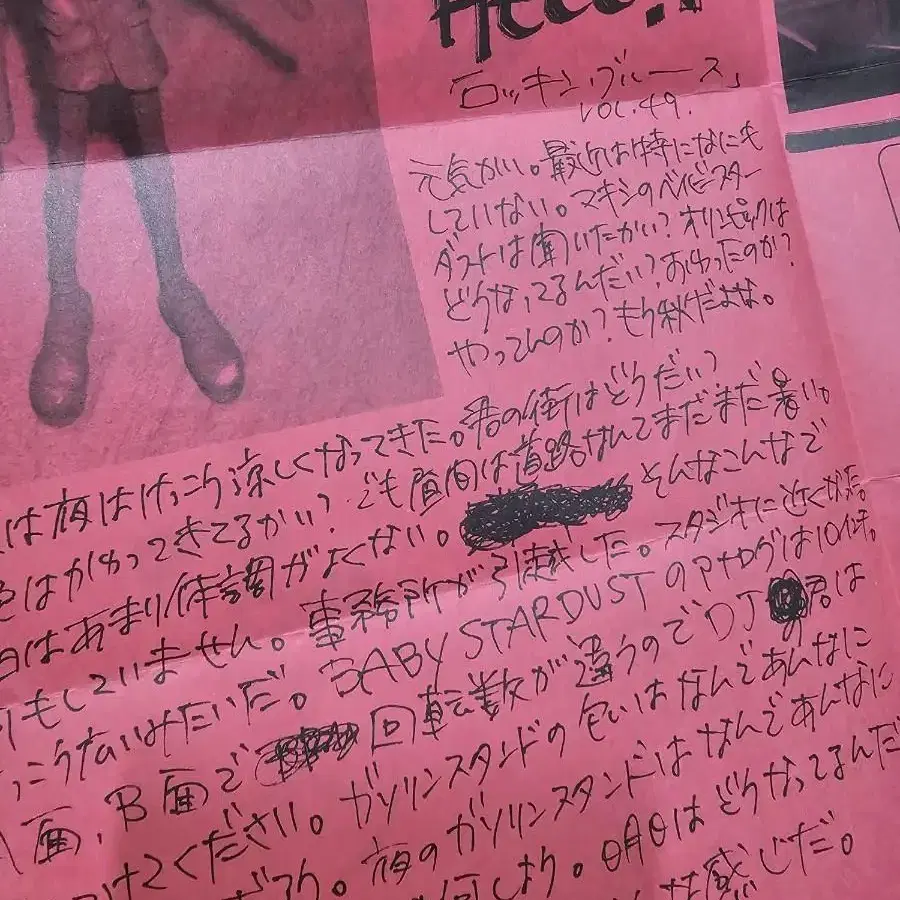 Hello!!
「ロッキン ブルース」
VOL.49.
元気かい。最近は特になにも
していない。マキシのベイビースター
ダストは聞いたかい?オリンピックは
どうなってるんだい?おわったのか?
やってんのか?もう秋だよな。
は夜はけっこう涼しくなってきた。君の街はどうだい?
はかわってきてるかい?でも昼間は道路なんてまだまだ暑い。
日はあまり体調がよくない。そんなこんなで
にもしていません。事務所が引越した。スタジオに近くなった。
っこう広いみたいだ。BABY STARDUSTのアナログは10インチ。
A面、B面で 回転数が違うのでDJの君は
つけてください。ガソリンスタンドの匂いはなんであんなに
夜のガソリンスタンドはなんであんなに
何しよう。明日はどうなってるんだ
な感じだ。